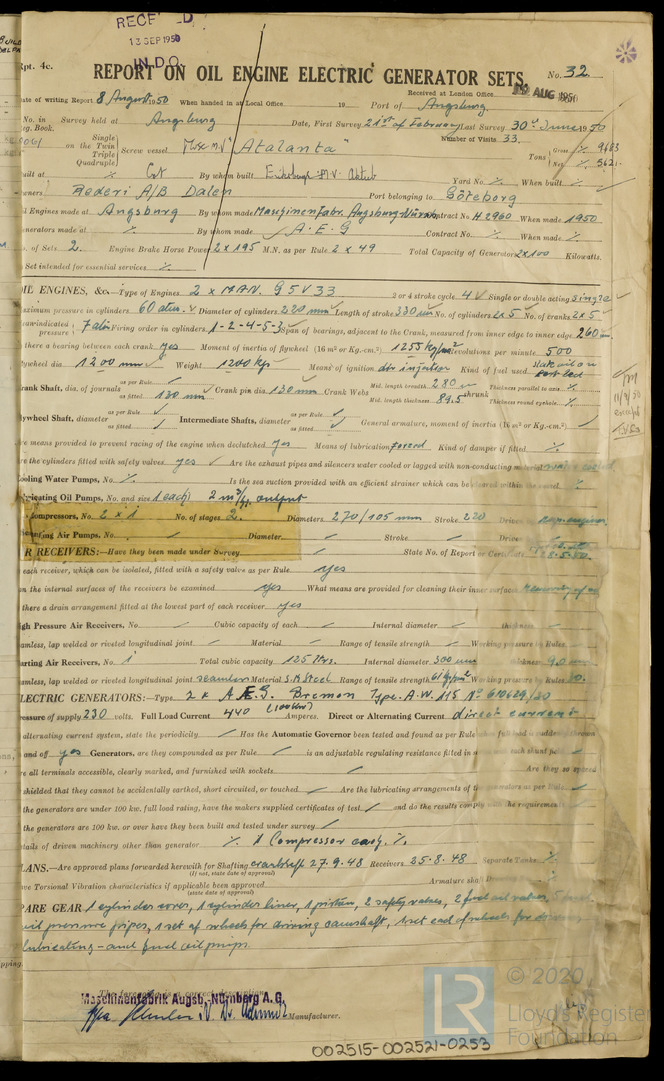 RECEIVED
13 SEP 1950
IN D.O.
Rpt. 4c.
REPORT ON OIL ENGINE ELECTRIC GENERATOR SETS. No. 32
Received at London Office AUG 1950
ate of writing Report 8 August 1950 When handed in at Local Office 19 Port of Augsburg
No. in Survey held at Augsburg Date, First Survey 21st of February Last Survey 30th June 1950
eg. Book. Number of Visits 33.
Single
on the Twin
Triple
Quadruple
Screw vessel M.V. "Atalanta" Tons Gross 9483 Net 5621
uilt at By whom built Eriksberg M.V. Yard No. When built
wners Rederi A/B Dalen Port belonging to Göteborg
il Engines made at Augsburg By whom made Maschinenfabr. Augsburg Nürnb. Contract No. H 2960 When made 1950
enerators made at By whom made A.E.G Contract No. When made
. of Sets 2. Engine Brake Horse Power 2 x 195 M.N. as per Rule 2 x 49 Total Capacity of Generators 2x100 Kilowatts.
Set intended for essential services
OIL ENGINES, &c.—Type of Engines 2 x MAN. G5V33 2 or 4 stroke cycle 4 Single or double acting single
aximum pressure in cylinders 60 atm. Diameter of cylinders 220 mm Length of stroke 330 mm No. of cylinders 2x5 No. of cranks 2x5
ean indicated pressure 7 atm Firing order in cylinders 1-2-4-5-3 Span of bearings, adjacent to the Crank, measured from inner edge to inner edge 260
s there a bearing between each crank yes Moment of inertia of flywheel (16 m² or Kg.-cm.²) 1255 kg/m² Revolutions per minute 500
lywheel dia. 1200 mm Weight 1200 kgs Means of ignition dir injection Kind of fuel used
rank Shaft, dia. of journals as per Rule as fitted 130 mm Crank pin dia. 130 mm Crank Webs Mid. length breadth 280 Mid. length thickness 89.5 shrunk Thickness parallel to axis Thickness round eyehole
lywheel Shaft, diameter as per Rule as fitted Intermediate Shafts, diameter as per Rule as fitted General armature, moment of inertia (16 m² or Kg.-cm.²)
re means provided to prevent racing of the engine when declutched yes Means of lubrication forced Kind of damper if fitted
re the cylinders fitted with safety valves yes Are the exhaust pipes and silencers water cooled or lagged with non-conducting material water cooled
ooling Water Pumps, No. Is the sea suction provided with an efficient strainer which can be cleared within the vessel
ubricating Oil Pumps, No. and size 1 each 2 m³/h. output
ir Compressors, No. 2 x 1 No. of stages 2. Diameters 270/105 mm Stroke 220 Driven
Air Pumps, No. Diameter Stroke Driven
R RECEIVERS:—Have they been made under Survey State No. of Report or Certificate
each receiver, which can be isolated, fitted with a safety valve as per Rule yes
an the internal surfaces of the receivers be examined yes What means are provided for cleaning their inner surfaces
there a drain arrangement fitted at the lowest part of each receiver yes
igh Pressure Air Receivers, No. Cubic capacity of each Internal diameter thickness
eamless, lap welded or riveted longitudinal joint Material Range of tensile strength Working pressure by Rules
arting Air Receivers, No. 1 Total cubic capacity 125 ltrs. Internal diameter 300 mm thickness 9.0 mm
eamless, lap welded or riveted longitudinal joint seamless Material S.M. Steel Range of tensile strength Working pressure by Rules 30.
ELECTRIC GENERATORS:—Type 2 x A.E.G. Bremen Type. A.W. 115 No 610629/30
ressure of supply 230 volts. Full Load Current 440 (100 kW) Amperes. Direct or Alternating Current direct current.
alternating current system, state the periodicity Has the Automatic Governor been tested and found as per Rule when full load is suddenly thrown
and off yes Generators, are they compounded as per Rule is an adjustable regulating resistance fitted in each shunt field
re all terminals accessible, clearly marked, and furnished with sockets Are they so spaced
shielded that they cannot be accidentally earthed, short circuited, or touched Are the lubricating arrangements of the generators as per Rule
the generators are under 100 kw. full load rating, have the makers supplied certificates of test and do the results comply with the requirements
the generators are 100 kw. or over have they been built and tested under survey
etails of driven machinery other than generator 1 Compressor each.
LANS.—Are approved plans forwarded herewith for Shafting crankshaft 27.9.48 Receivers 25.8.48 Separate Tanks
(If not, state date of approval)
ave Torsional Vibration characteristics if applicable been approved Armature shaft Drawing
(state date of approval)
PARE GEAR 1 cylinder cover, 1 cylinder liner, 1 piston, 2 safety valves, 2 fuel oil valves, 5 fuel
oil pressure pipes, 1 set of wheels for driving camshaft, 1 set each of wheels for driving
lubricating- and fuel oil pumps.
The foregoing is a correct description,
Maschinenfabrik Augsb.-Nürnberg A.G.
Manufacturer.
LR
© 2020
Lloyd's Register
Foundation
002515-002521-0253